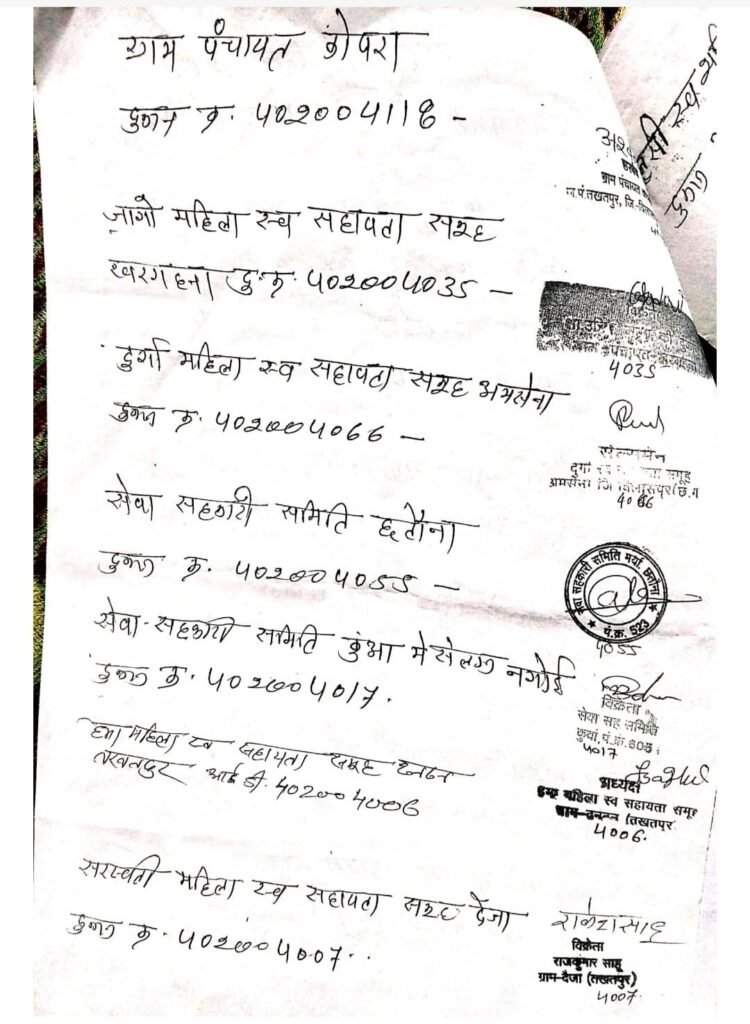 ग्राम पंचायत कोपरा
दुकान क्र. 402004118 -
जागो महिला स्व सहायता समूह
खरगहना दु.क्र. 402004035 -
दुर्गा महिला स्व सहायता समूह अमसेना
दुकान क्र. 402004066 -
सेवा सहकारी समिति छतौना
दुकान क्र. 402004055 -
सेवा-सहकारी समिति कुंआ मे संलग्न नगोई
दुकान क्र. 402004017.
महिला स्व सहायता समूह
तखतपुर आई डी. 402004006
सरस्वती महिला स्व सहायता समूह देजा
दुकान क्र. 402004007..
ग्राम पंचायत
ज.पं.तखतपुर, जि.
दुकान
4035
सेल्समेन
दुर्गा समूह
अमसेना जि बिलासपुर छ.ग
4066
सेवा सहकारी समिति मर्या. छतौना
पं.क्र. 523
4055
विक्रेता
सेवा सह समिति
कुवां. पं.क्र.605
4017
अध्यक्ष
महिला स्व सहायता समूह
ग्राम- (तखतपुर
4006.
विक्रेता
राजकुमार साहू
ग्राम-देजा (तखतपुर)
4007